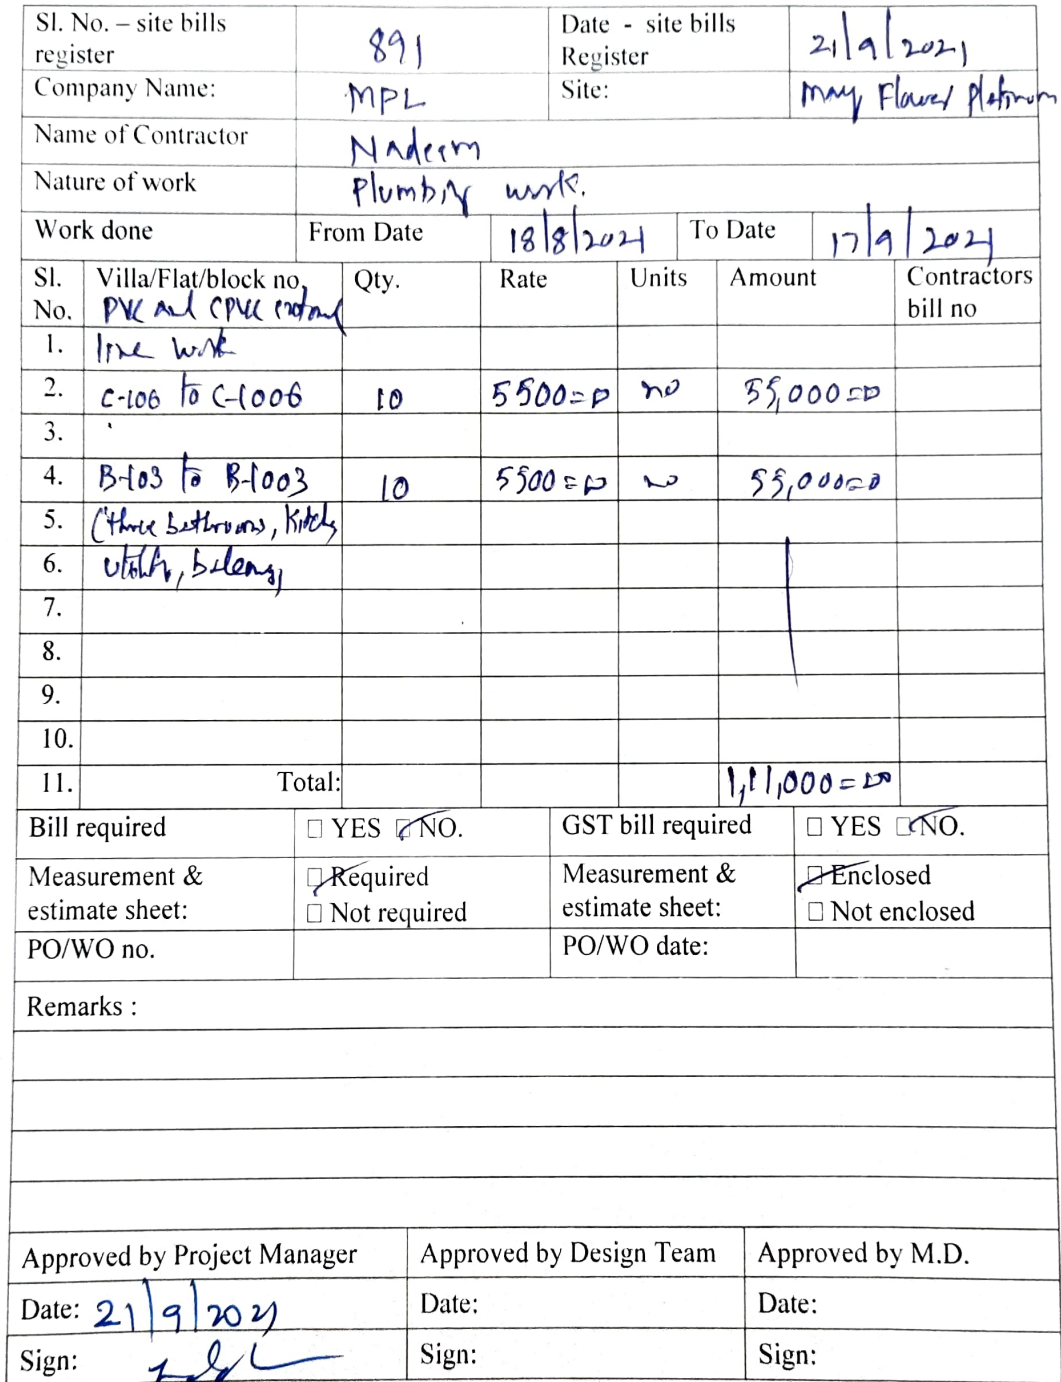 Sl. No. – site bills register 891 Date - site bills Register 21/9/2021
Company Name: MPL Site: May Flower Platinum
Name of Contractor Nadeem
Nature of work Plumbing work.
Work done From Date 18/8/2021 To Date 17/9/2021
Sl. No. Villa/Flat/block no, Qty. Rate Units Amount Contractors bill no
PVC and CPVC
1. line work
2. C-106 to C-1006 10 5500=00 no 55,000=00
3.
4. B-103 to B-1003 10 5500=00 no 55,000=00
5. (three bathrooms, Kitch
6. utility,
7.
8.
9.
10.
11. Total: 1,11,000=00
Bill required □ YES □ NO. GST bill required □ YES □ NO.
Measurement & estimate sheet: □ Required □ Not required Measurement & estimate sheet: □ Enclosed □ Not enclosed
PO/WO no. PO/WO date:
Remarks :
Approved by Project Manager Approved by Design Team Approved by M.D.
Date: 21/9/2021 Date: Date:
Sign: Sign: Sign: